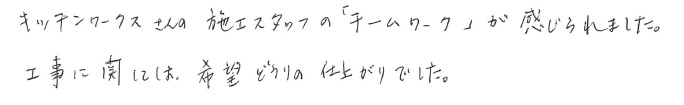 キッチンワークスさんの施工スタッフの「チームワーク」が感じられました。
工事に関しては、希望どうりの仕上がりでした。